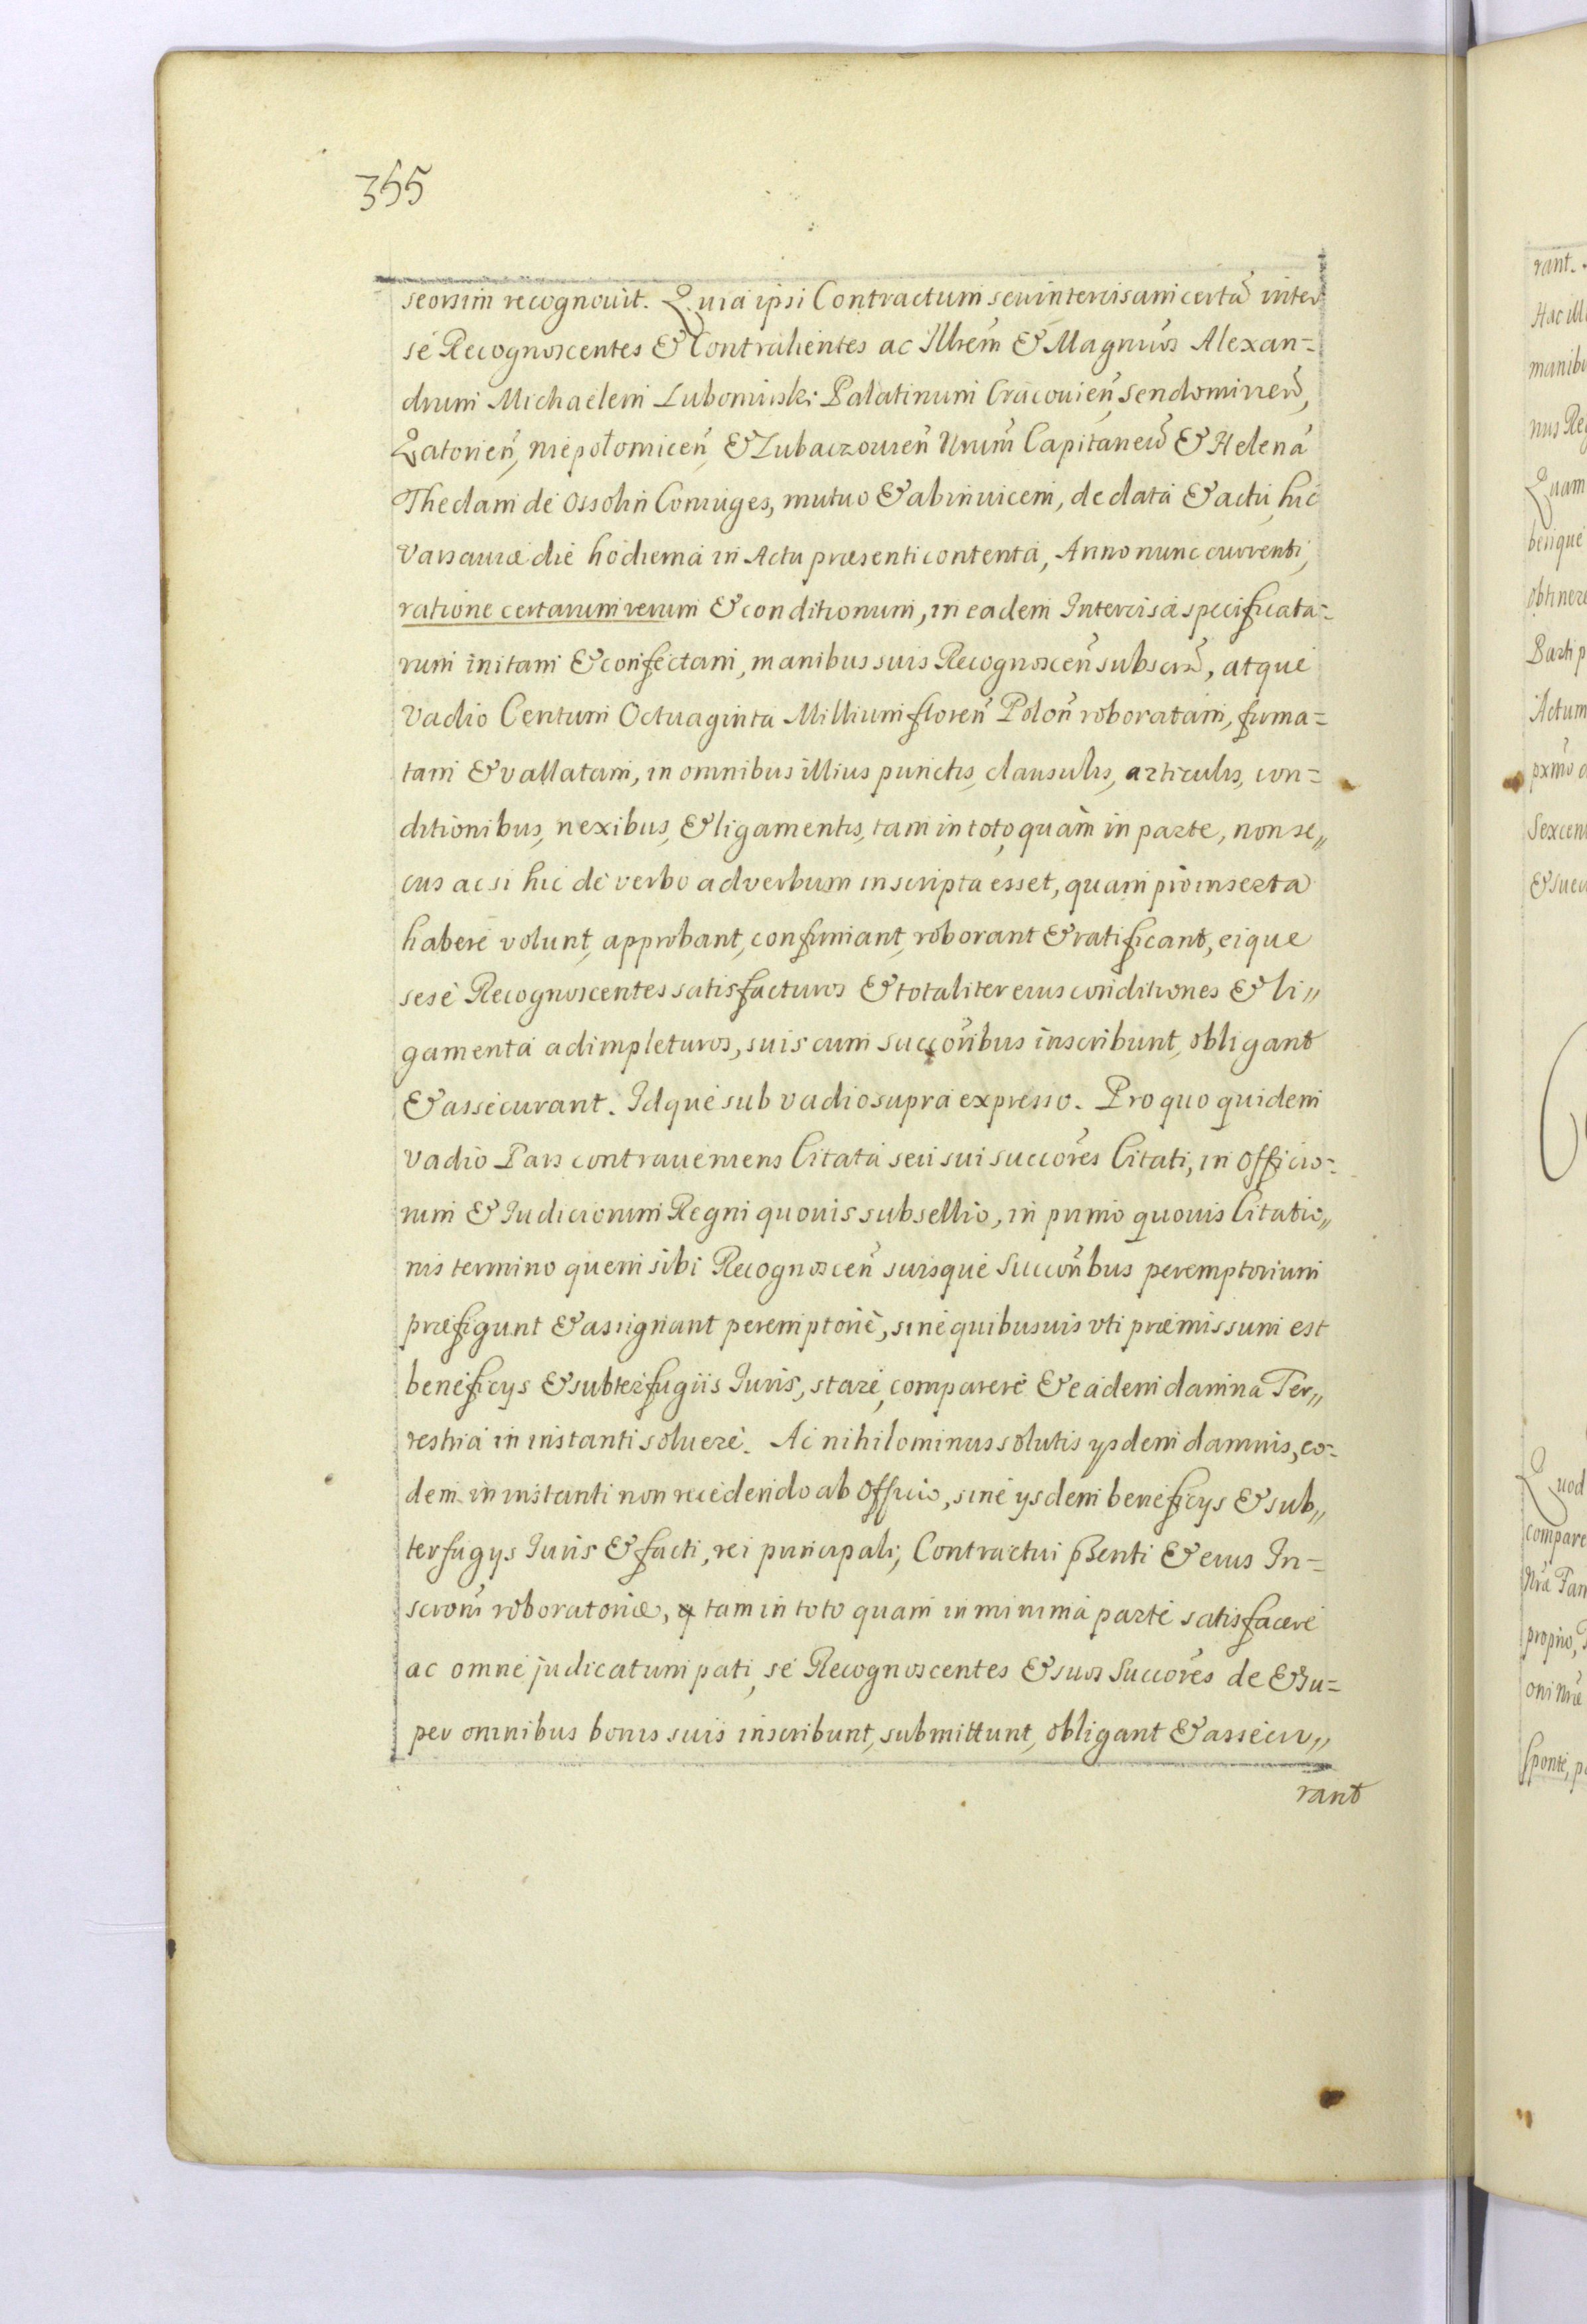 355
seorsim recognovit. Quia ipsi Contractum seu intercisam certā inter
se Recognoscentes & Contrahentes ac Illrem̃ & Magnuos Alexan=
drum Michaelem Lubomirski Palatinum Cracovieñ, Sendomirieñ,
Zatorieñ, Niepołomiceñ, & Lubaczovieñ Urum̃ Capitaneũ & Helenã
Theclam de Ossolin Coniuges, mutuo & abinvicem, de data & actu hic
Varsaviæ die hodierna in Actu præsenti contenta, Anno nunc currenti,
ratione certarum rerum & conditionum, in eadem Intercisa specificata=
rum initam & confectam, manibus suis Recognosceñ subscrã, atque
Vadio Centum Octuaginta Millium floreñ Poloñ roboratam, firma=
tam & vallatam, in omnibus illius punctis, clausulis, articulis, con=
ditionibus, nexibus, & ligamentis, tam in toto, quàm in parte, non se〃
cus ac si hic de verbo ad verbum inscripta esset, quam pro inserta
habere volunt, approbant, confirmant, roborant & ratificant, eique
sese Recognoscentes satisfacturos & totaliter eius conditiones & li〃
gamenta adimpleturos, suis cum succoribus inscribunt, obligant
& assecurant. Idque sub vadio supra expresso. Pro quo quidem
vadio Pars contraveniens Citata seu sui succores Citati, in Officio=
rum & Iudiciorum Regni quovis subsellio, in primo quovis Citatio〃
nis termino quem sibi Recognosceñ suisque Succoribus peremptorium
præfigunt & assignant peremptoriè, sine quibusvis uti præmissum est
beneficys & subterfugiis Iuris, stare, comparere & eadem damna Ter〃
restria in instanti solvere. Ac nihilominus solutis ysdem damnis, eo=
dem in instanti non recedendo ab Officio, sine ysdem beneficys & sub〃
terfugys Iuris & facti, rei principali, Contractui p̃senti & eius In=
scroni roboratoriæ, tam in toto quam in minima parte satisfacere
ac omne judicatum pati, se Recognoscentes & suos Succores de & su=
per omnibus bonis suis inscribunt, submittunt, obligant & assecu〃
rant